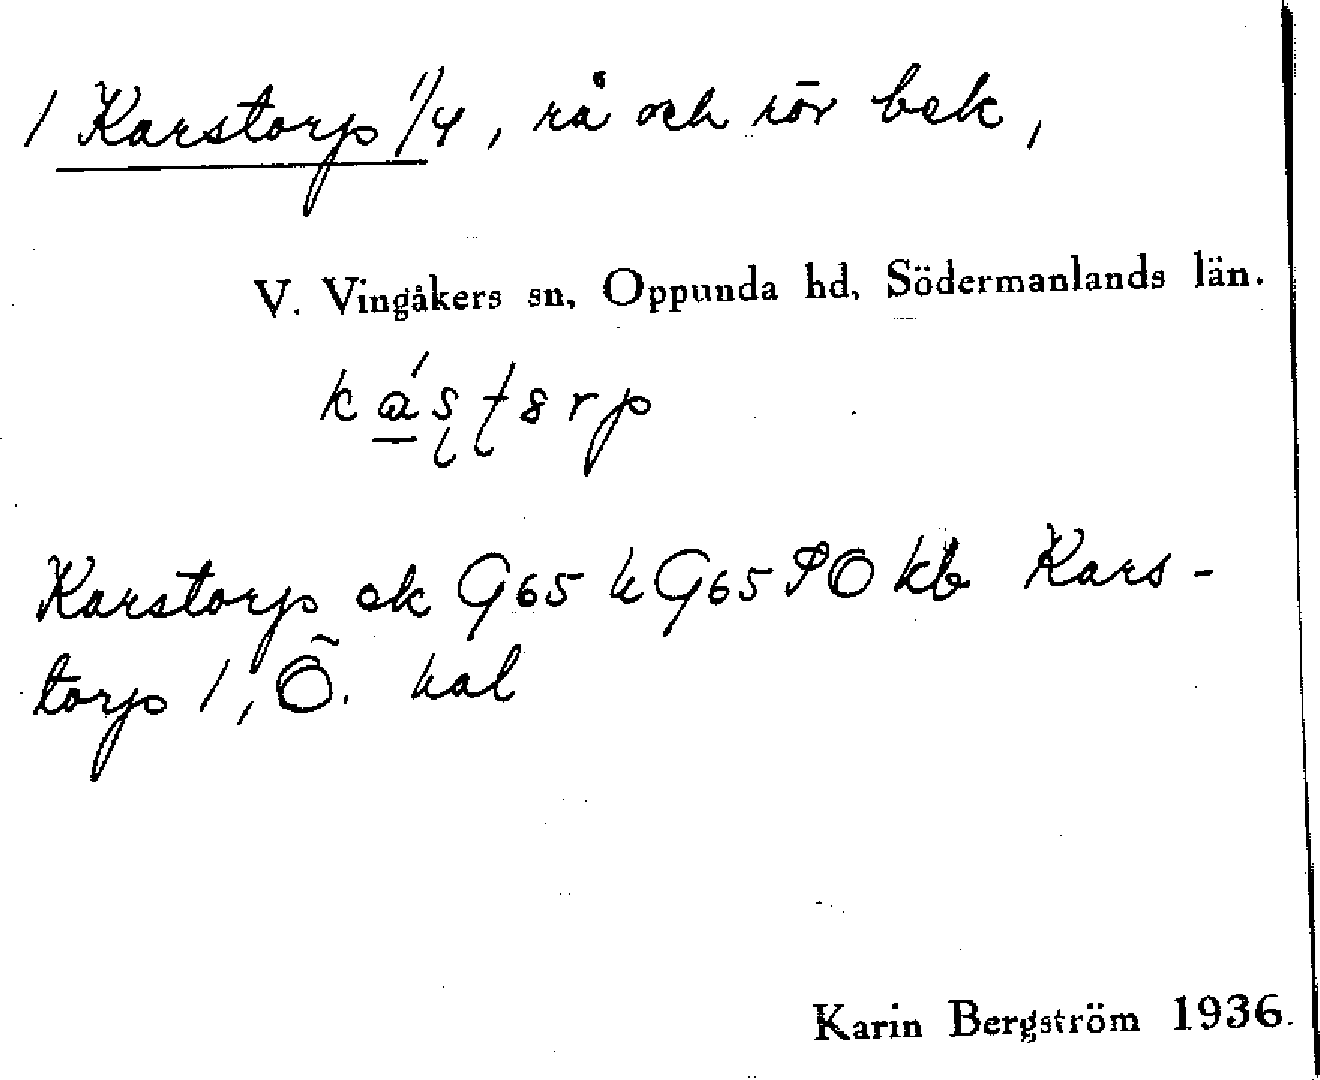 1 Karstorp 1/4, rå och rör bek,
V. Vingåkers sn, Oppunda hd, Södermanlands län.
Karstorp ek G65 h G65 PO kb Kars-
torp 1, Ö. hal
Karin Bergström 1936.